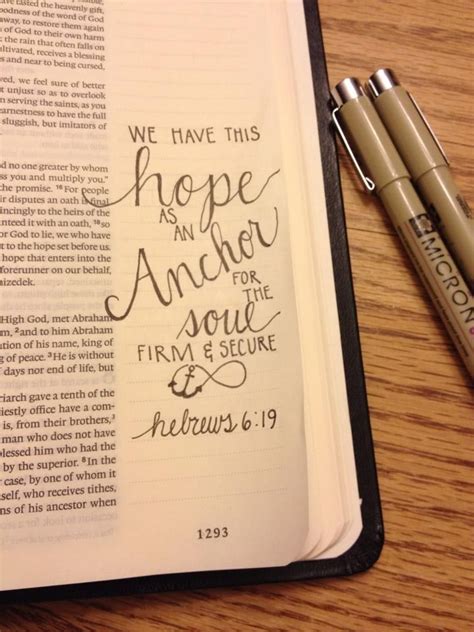 asted the heavenly gift,
oodness of the word of God
away, to restore them again
n of God to their own harm
nd that often falls on
ultivated, receives a blessing
s and near to being cursed,
we feel sure of better
t unjust so as to overlook
n serving the saints, as you
earnestness to have the full
sluggish, but imitators of
ad no one greater by whom
ss you and multiply you."
the promise. 16 For people
ir disputes an oath is final
incingly to the heirs of the
anteed it with an oath, 18 so
or God to lie, we who have
the hope set before us.
hope that enters into the
forerunner on our behalf,
izedek.
High God, met Abraham
, 2 and to him Abraham
ution of his name, king of
g of peace. 3 He is without
f days nor end of life, but
triarch gave a tenth of the
iestly office have a com-
, from their brothers,
man who does not have
blessed him who had the
by the superior. 8 In the
case, by one of whom it
self, who receives tithes,
ns of his ancestor when
WE HAVE THIS
hope
AS
AN
Anchor
FOR
THE
soul
FIRM & SECURE
hebrews 6:19
1293
MICRON